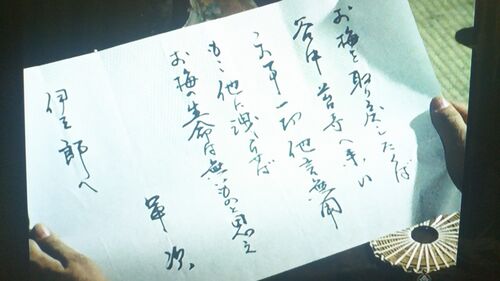 お梅を取り戻したくば
谷中 苔寺へ来い
この事一切他言無用
もし他に洩らさば
お梅の生命は無いものと思え
軍次
伊三郎へ